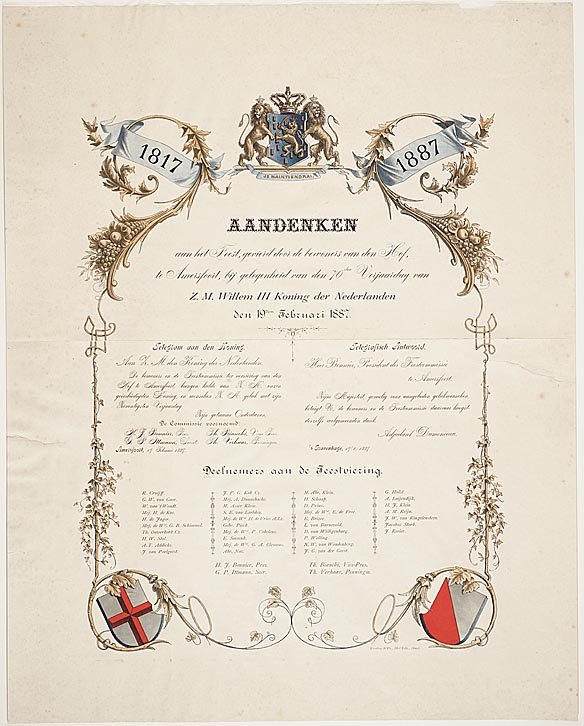 1817
1887
JE MAINTIENDRAI
AANDENKEN
aan het Feest, gevierd door de bewoners van den Hof,
te Amersfoort, bij gelegenheid van den 70sten Verjaardag van
Z. M. Willem III Koning der Nederlanden
den 19den Februari 1887.
Telegram aan den Koning.
Aan Z. M. den Koning der Nederlanden.
De bewoners en de Feestcommissie ter viering van den
Hof te Amersfoort, brengen hulde aan Z. M. onzen
geëerbiedigden Koning, en wenschen Z. M. geluk met zijn
Zeventigsten Verjaardag
Zijn getrouwe Onderdanen,
De Commissie voornoemd
H. J. Bennier, Pres. Th. Bianchi, Vice Pres.
G. P. Ittmann, Secret. Th. Verhaar, Penningm.
Amersfoort, 19 Februari 1887.
Telegrafisch Antwoord.
Heer Bennier, President der Feestcommissie
te Amersfoort.
Zijne Majesteit, gevoelig voor aangeboden gelukwenschen
betuigt U, de bewoners en de Feestcommissie daarvoor hoogst
deszelfs welgemeenden dank.
Adjudant Dumonceau.
's Gravenhage, 1887
Deelnemers aan de Feestviering.
R. Cruijff
G. W. van Goor.
W. van 't Woudt.
Mej. H. de Kur.
H. de Jager.
Mej. de Wwe G. B. Schimmel.
Th. Ouwerkerk Cz.
H. W. Stel.
A. T. Addicks.
J. van Poelgeest.
J. P. G. Eek Cz.
Mej. A. Dusschoche.
M. Asser Klein.
N. E. van Lunldre.
Mej. de Wwe H. de Vries A.Lz.
Gebr. Pieck
Mej. de Wwe P. Cobelens.
E. Smeenk.
Mej. de Wwe G. A. Clemens.
Abr. Nus.
M. Abr. Klein.
H. Schaap.
D. Prins.
Mej. de Wwe E. de Bree.
E. Bries.
L. van Barneveld.
D. van Willigenburg.
P. Welling.
N. W. van Woudenberg.
J. G. van der Goed.
G. Hulst.
A. Luijendijk.
H. J. Klein
A. W. Reijn.
J. W. van Ringelenstein.
Jacobus Stork.
F. Rosier.
H. J. Bennier, Pres.
G. P. Ittmann, Secr.
Th. Bianchi, Vice-Pres.
Th. Verhaar, Penningm.